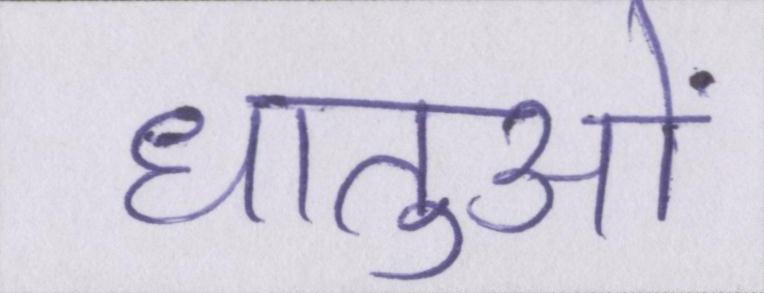 धातुओं